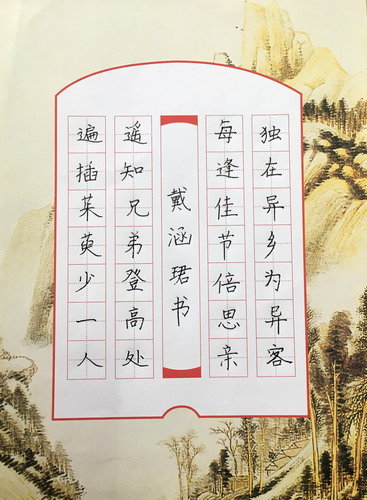 独在异乡为异客
每逢佳节倍思亲
戴涵珺书
遥知兄弟登高处
遍插茱萸少一人